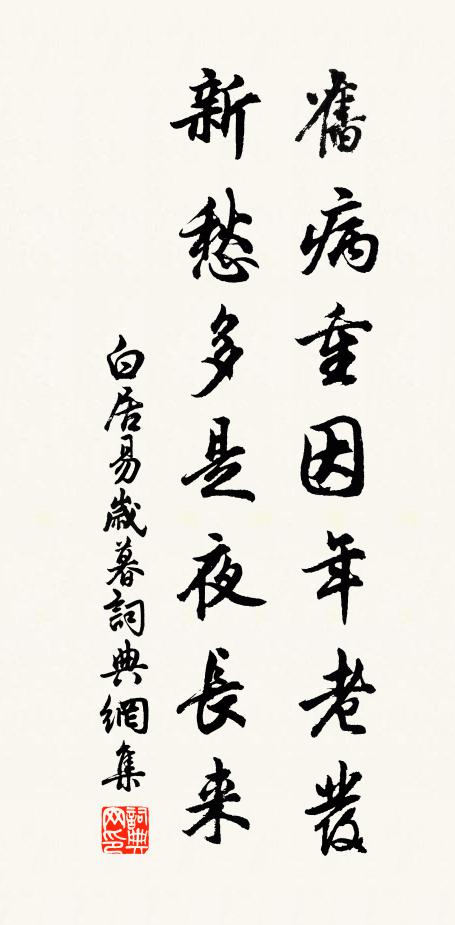 舊病重因年老發
新愁多是夜長来
白居易歲暮詞典網集
詞典网印